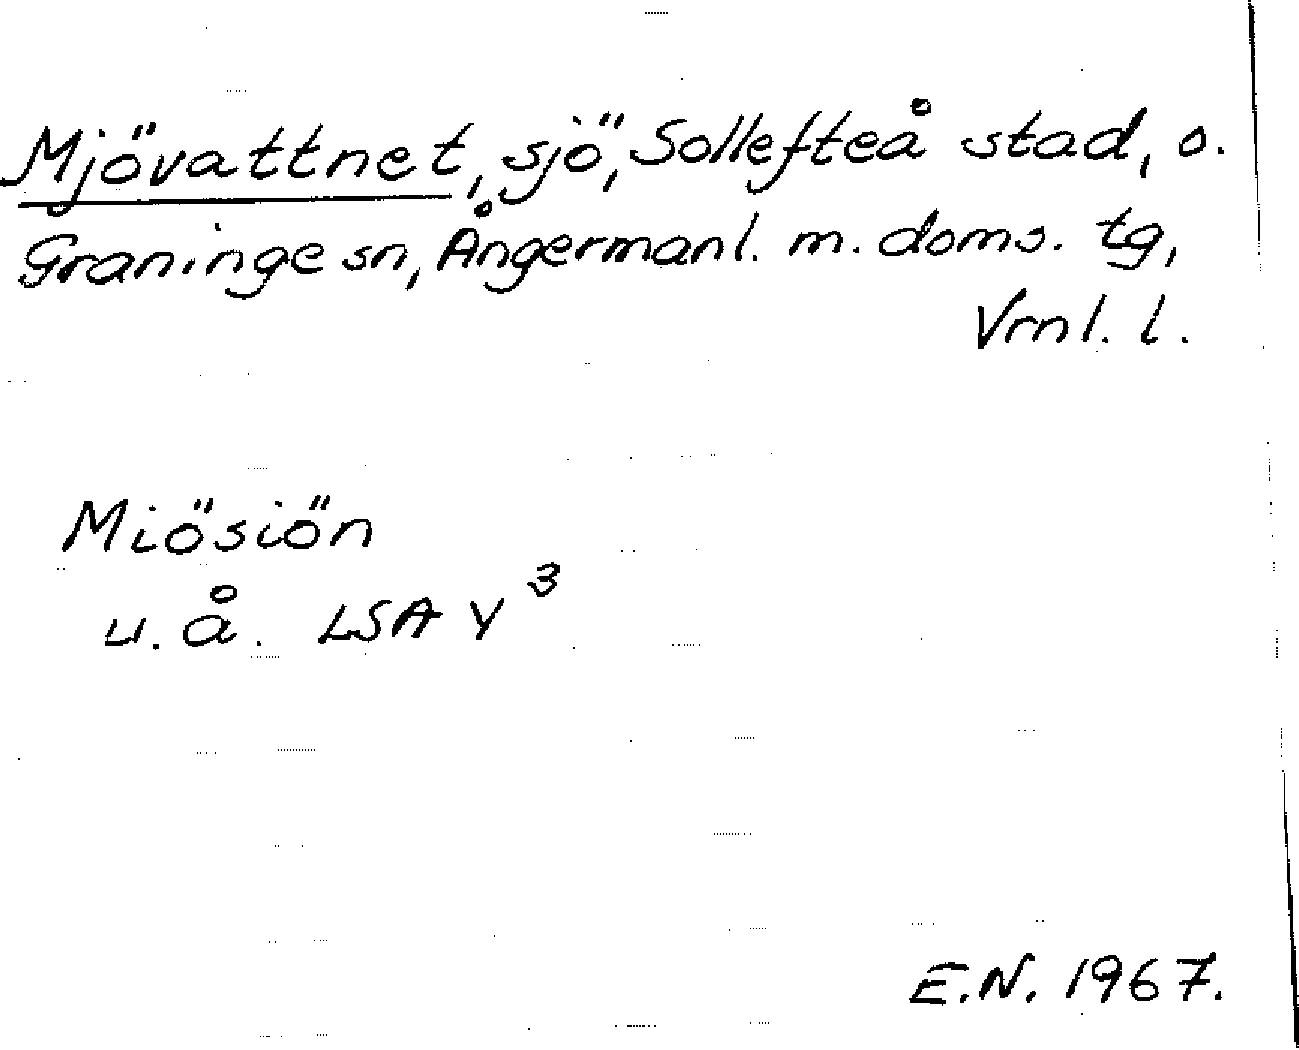 Mjövattnet, sjö, Sollefteå stad, o.
Graninge sn, Ångermanl. m. doms. tg,
Vrnl. l.
Miösiön
u. å. LSA Y 3
E.N. 1967.